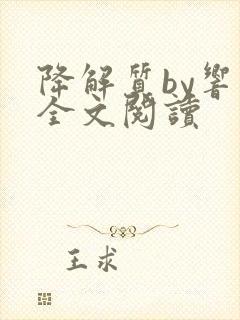 降解質by響
全文閱讀
王求